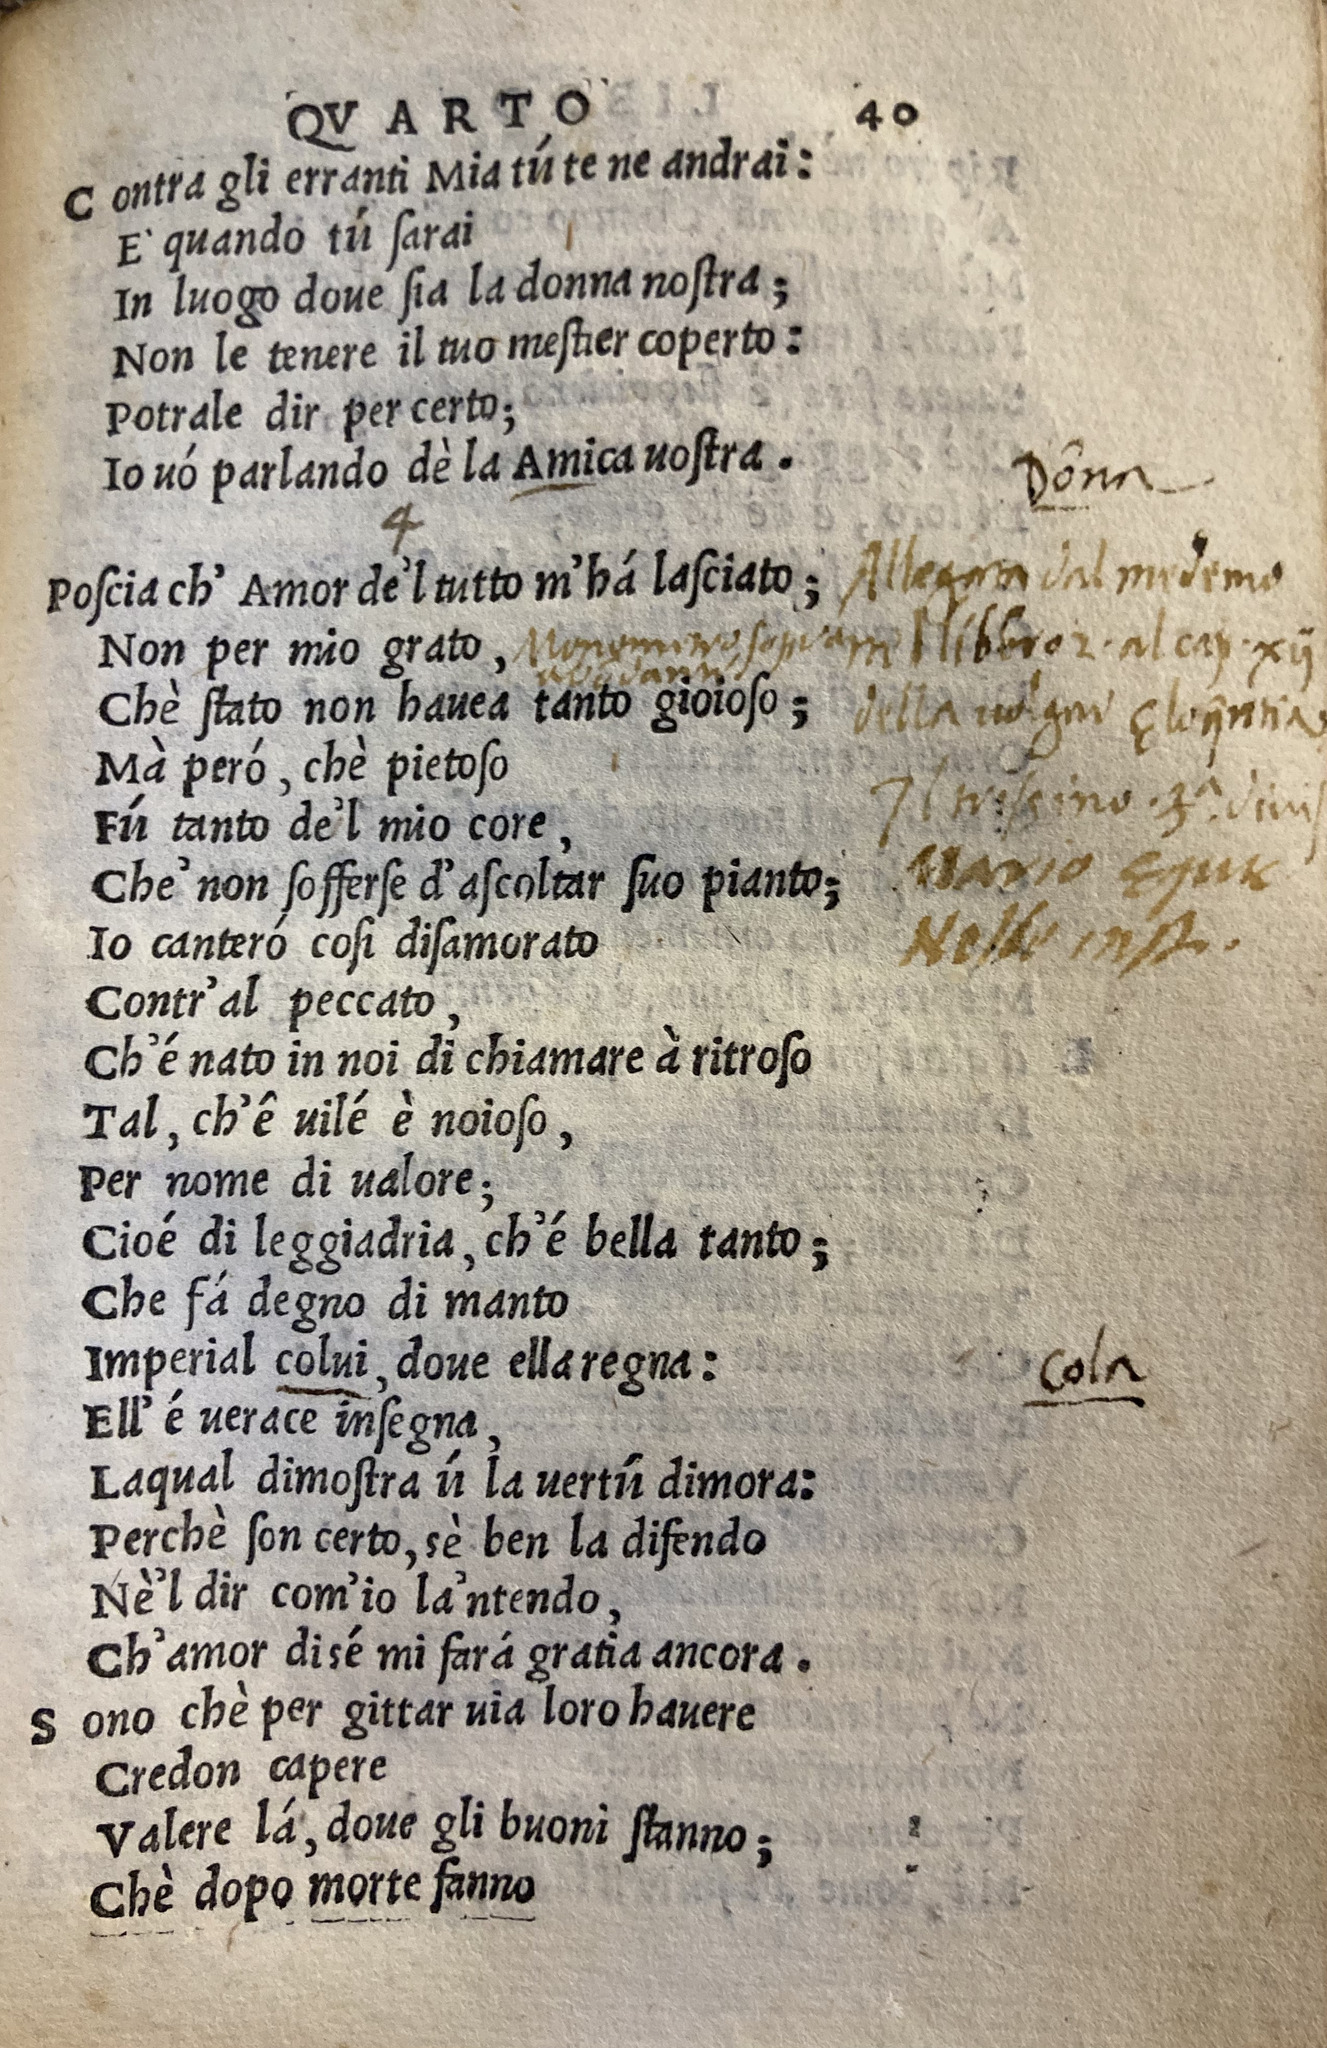 QVARTO 40
Contra gli erranti Mia tú te ne andrai:
E` quando tú ſarai
In luogo doue ſia la donna noſtra;
Non le tenere il tuo meſtier coperto:
Potrale dir per certo;
Io uó parlando dè la Amica uoſtra.
Dôna
4
Poſcia ch' Amor de'l tutto m'há laſciato;
Allegata dal medemo
Non per mio grato,
libbro 2. al cap. xij
Chè ſtato non hauea tanto gioioſo;
della uulgar
Mà peró, chè pietoſo
Fú tanto de'l mio core,
Il triſsino 3ª. diuiſ
Che' non ſofferſe d'aſcoltar ſuo pianto;
Mario Equic
Io canteró coſi diſamorato
Nelle inſt.
Contr'al peccato,
Ch'é nato in noi di chiamare à ritroſo
Tal, ch'ê uilé è noioſo,
Per nome di ualore;
Cioé di leggiadria, ch'é bella tanto;
Che fá degno di manto
Imperial colui, doue ella regna:
Cola
Ell' é uerace inſegna,
Laqual dimoſtra ú la uertú dimora:
Perchè ſon certo, sè ben la difendo
Nè'l dir com'io la'ntendo,
Ch'amor di sé mi fará gratia ancora.
Sono chè per gittar uia loro hauere
Credon capere
Valere lá, doue gli buoni ſtanno;
Chè dopo morte fanno